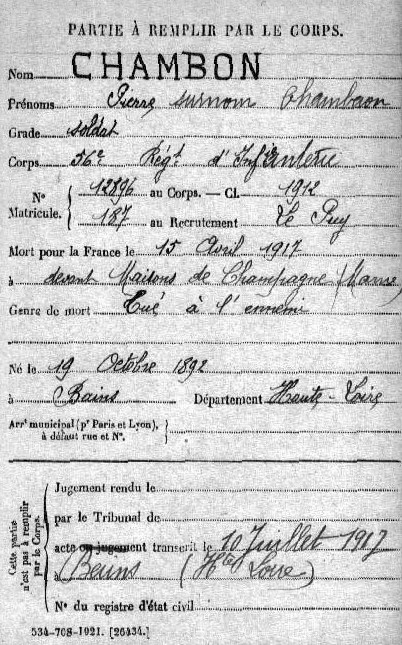 PARTIE À REMPLIR PAR LE CORPS.
Nom CHAMBON
Prénoms Pierre surnom Chambaon
Grade soldat
Corps 56e Régt d'Infanterie
N° Matricule. { 12896 au Corps. — Cl. 1912
187 au Recrutement Le Puy
Mort pour la France le 15 Avril 1917
à devant Maisons de Champagne (Marne)
Genre de mort Tué à l'ennemi
Né le 19 Octobre 1892
à Bains Département Haute-Loire
Arrt municipal (pr Paris et Lyon),
à défaut rue et N°.
Cette partie n'est pas à remplir par le Corps.
Jugement rendu le
par le Tribunal de
acte ou jugement transcrit le 10 Juillet 1917
à Beuns (Hte Loire)
N° du registre d'état civil
534-708-1921. [26434.]